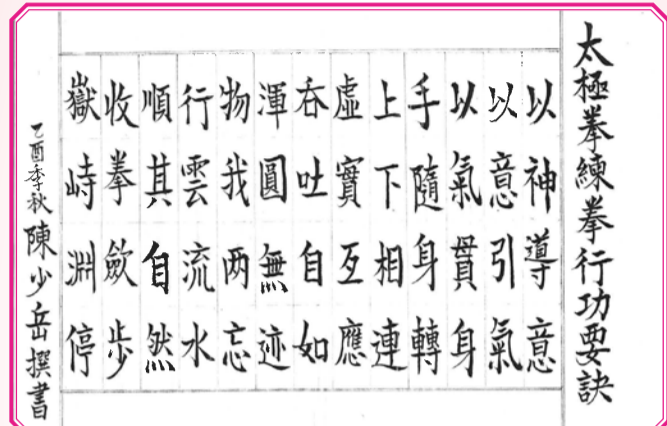 太極拳練拳行功要訣
以神導意
以意引氣
以氣貫身
手隨身轉
上下相連
虛實互應
吞吐自如
渾圓無迹
物我两忘
行雲流水
順其自然
收拳歛步
嶽峙淵停
乙酉季秋陳少岳撰書